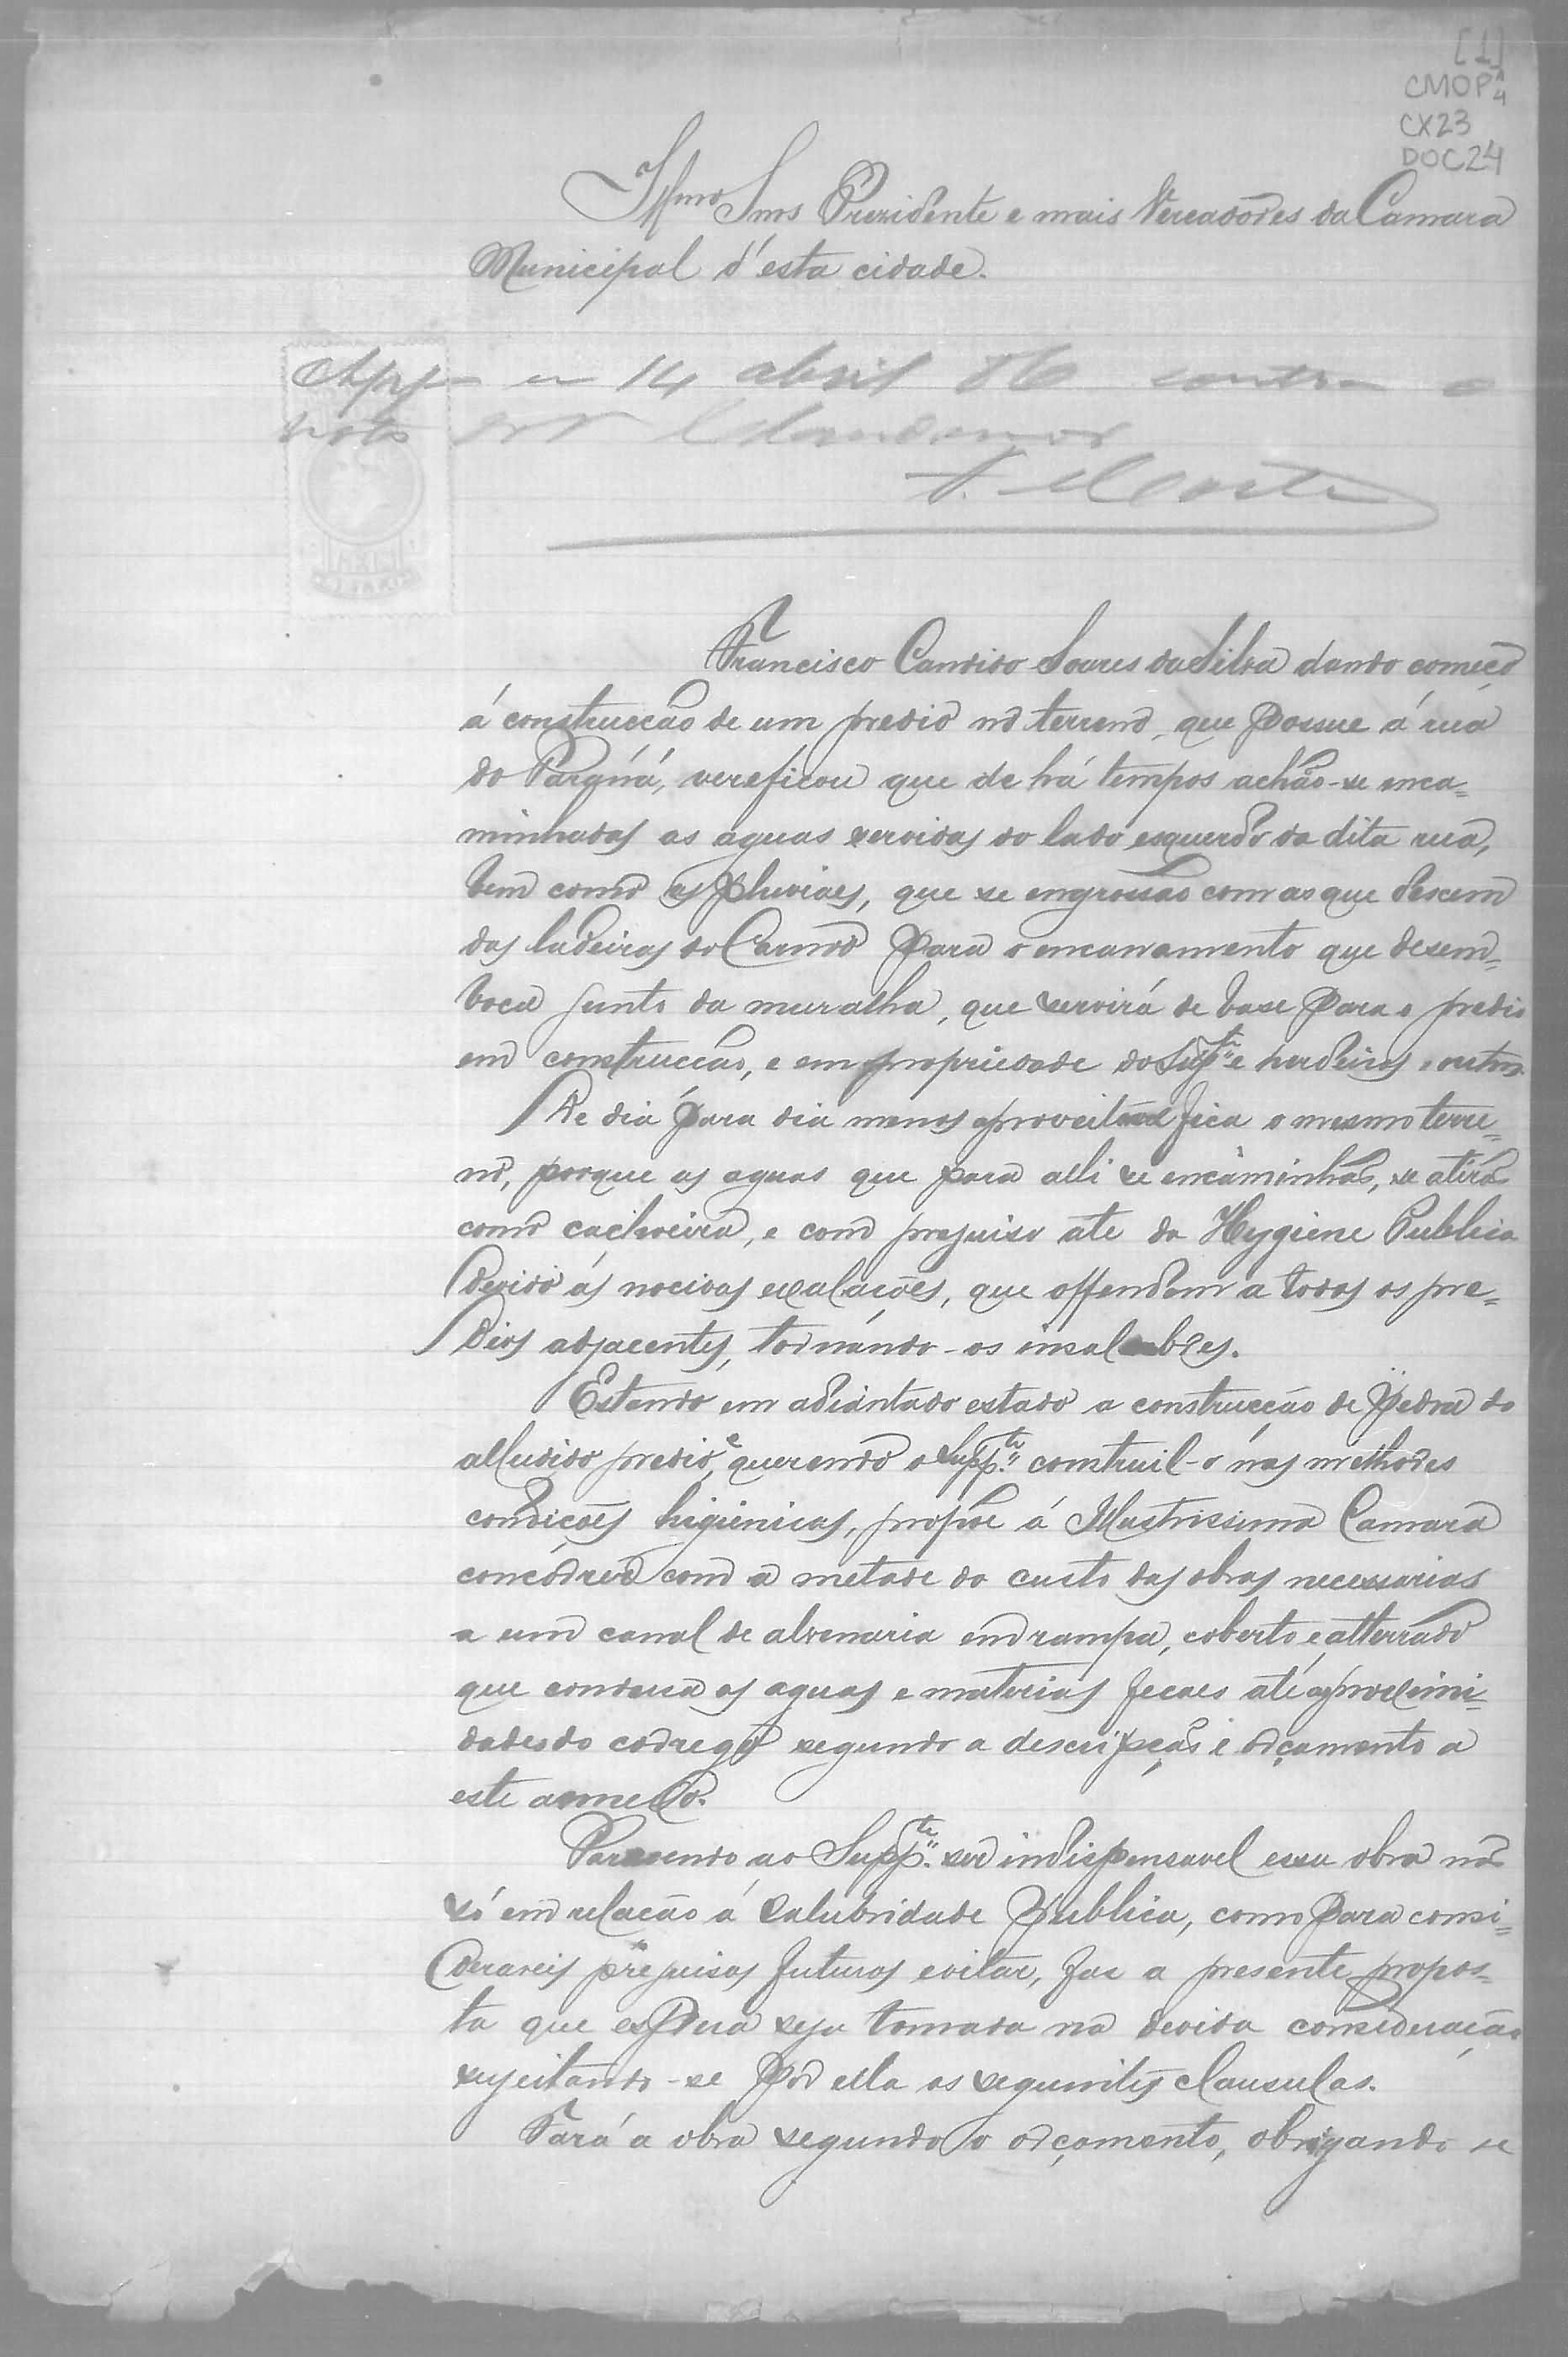 [1]
CMOP
CX23
DOC24
Illmos Snrs Prezidente e mais Vereadores da Camara
Municipal d'esta cidade.
em 14 abril 86 contra o
voto
Francisco Candido Soares da Silva dando começo
á construcção de um predio no terreno, que possue á rua
do Paraná, vereficou que de há tempos achão-se enca=
minhadas as aguas servidas do lado esquerdo da dita rua,
bem como as pluviaes, que se engrossão com as que descem
das ladeiras do Carmo para o encanamento que desem=
boca junto da muralha, que servirá de base para o predio
em construcção, e em propriedade do Suppte e herdeiros e outros.
De dia para dia menos aproveitavel fica o mesmo terre=
no, porque as aguas que para alli se encaminhão, se atirão
como cachoeira, e com prejuiso até da Hygiene Publica
devido ás nocivas exalações, que offendem a todos os pre=
dios adjacentes, tornando-os insalubres.
Estando em adiantado estado a construcção de pedra do
alludido predio, e querendo o Suppte construil-o nas melhores
condições higienicas, propõe á Illustrissima Camara
concorrer com a metade do custo das obras necessarias
a um canal de alvenaria em rampa, coberto e atterrado
que condusa as aguas e materias fecaes até aproximi=
dades do corrego segundo a descripção e orçamento a
este annexo.
Parecendo ao Suppte ser indispensavel essa obra não
só em relacão á salubridade publica, como para consi=
deraveis prejuisos futuros evitar, faz a presente propos=
ta que espera seja tomada na devida consideração
sujeitando-se por ella as seguintes clausulas.
Fará a obra segundo o orçamento, obrigando se